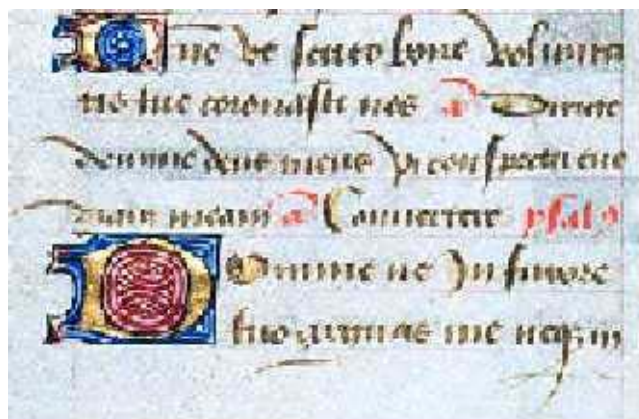 Dne ut scuto bone volunta
tis tue coronasti nos a Dirige
domine deus meus in conspectu tuo
viam meam a Convertere psal
Domine ne in furore
tuo arguas me neq in